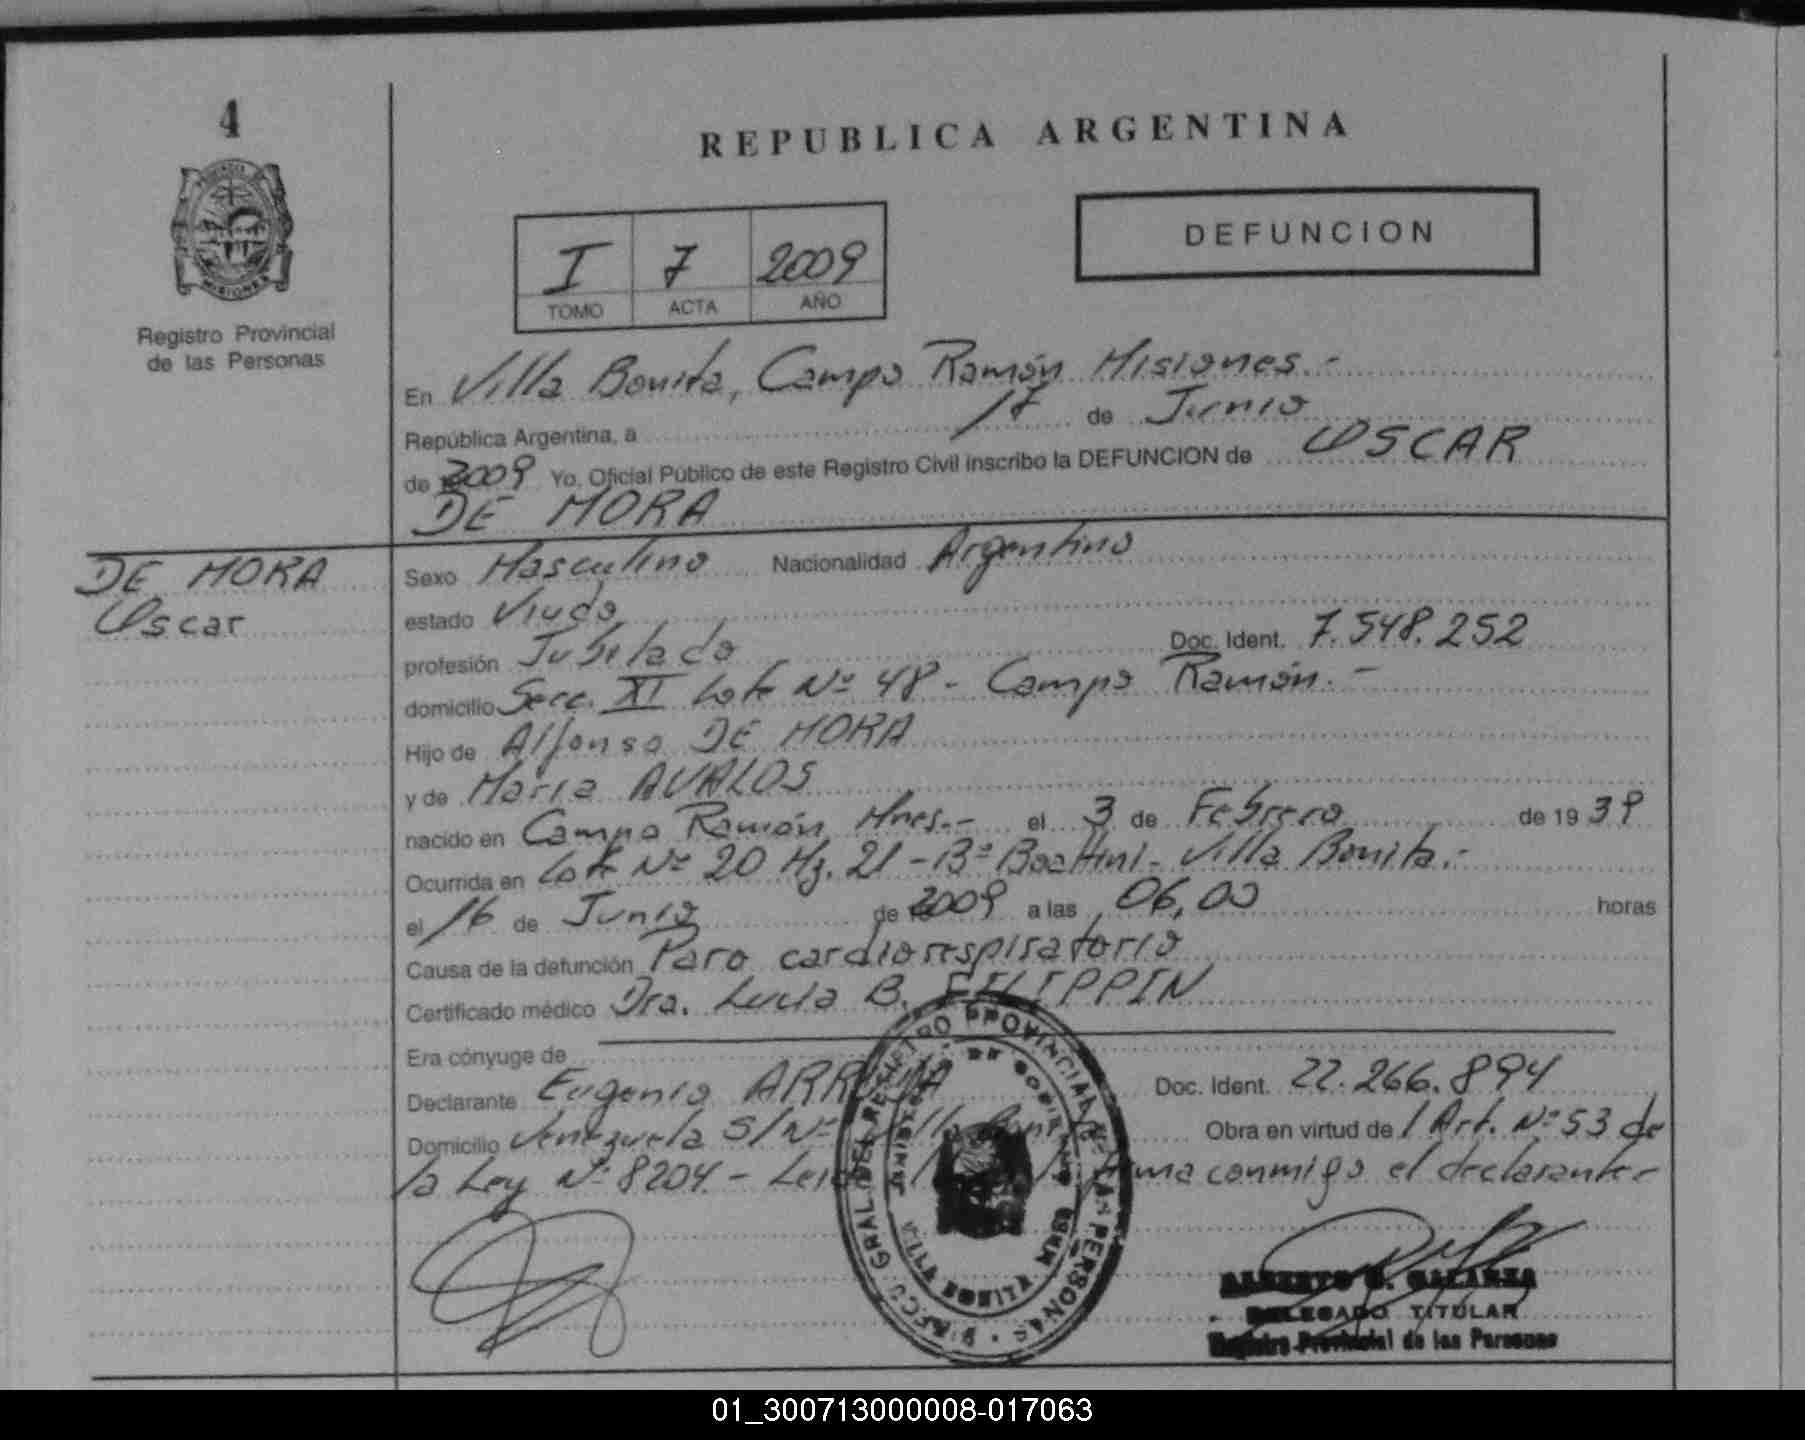 4
REPUBLICA ARGENTINA
DEFUNCION
I 7 2009
TOMO ACTA AÑO
MISIONES
Registro Provincial
de las Personas
En Villa Bonita, Campo Ramón Misiones.-
República Argentina, a 17 de Junio
de 2009 Yo, Oficial Público de este Registro Civil inscribo la DEFUNCION de OSCAR
DE MORA
DE MORA
Oscar
Sexo Masculino Nacionalidad Argentino
estado Viudo
profesión Jubilado Doc. Ident. 7.548.252
domicilio Secc. XI Lote Nº 48 - Campo Ramón.-
Hijo de Alfonso DE MORA
y de María AVALOS
nacido en Campo Ramón Mnes.- el 3 de Febrero de 1939
Ocurrida en Lote Nº 20 Mz. 21 - Bº Boattini - Villa Bonita.-
el 16 de Junio de 2009 a las 06,00 horas
Causa de la defunción Paro cardiorespiratorio
Certificado médico Dra. Lucia B. FILIPPIN
Era cónyuge de
Declarante Eugenio Doc. Ident. 22.266.894
Domicilio Venezuela S/Nº Villa Obra en virtud de l Art. Nº 53 de
la Ley Nº 8204.- firma conmigo el declarante
REGISTRO PROVINCIAL DE LAS PERSONAS
VILLA BONITA
DELEGADO TITULAR
Registro Provincial de las Personas
01_300713000008-017063